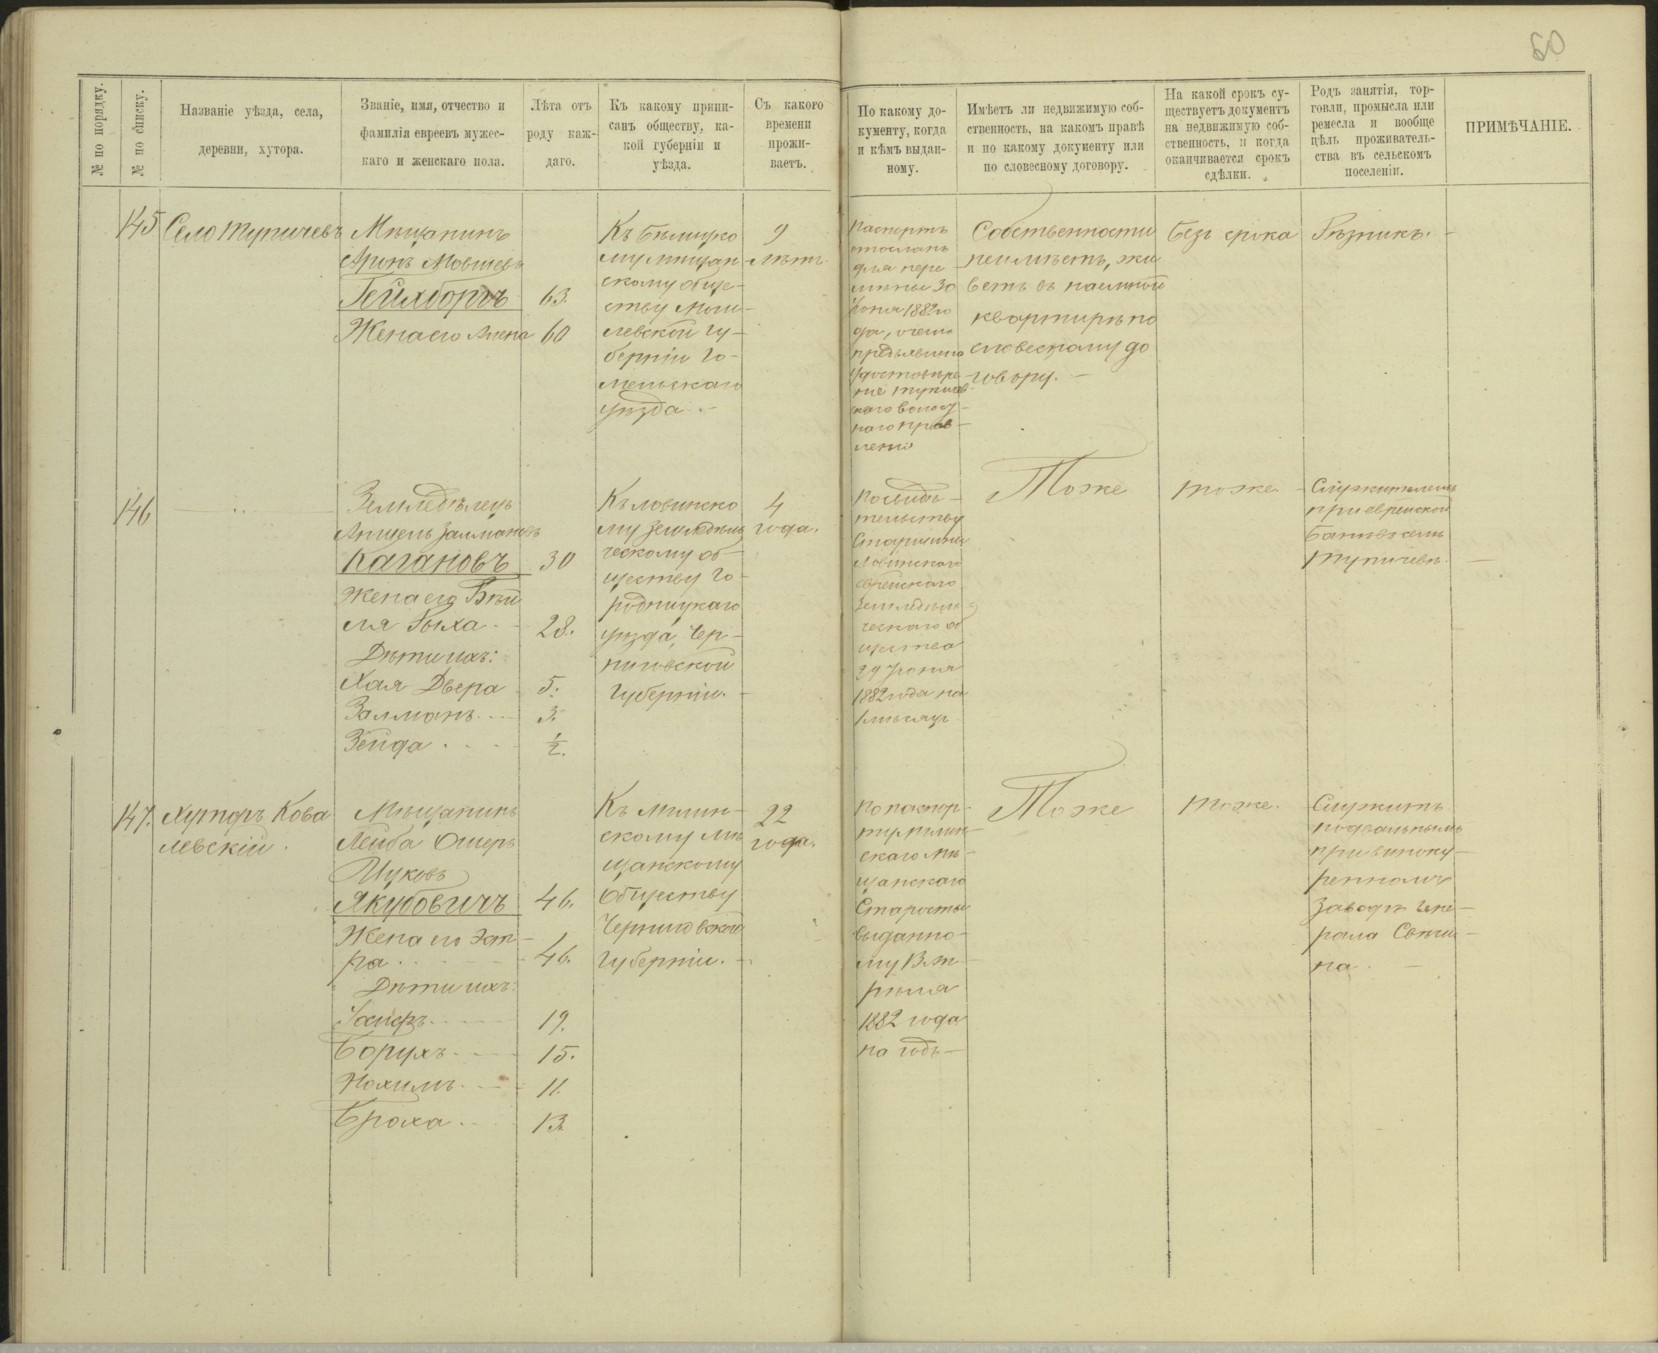 60
№ по порядку.
№ по списку.
Названіе уѣзда, села,
деревни, хутора.
Званіе, имя, отчество и
фамилія евреевъ мужес-
каго и женскаго пола.
Лѣта отъ
роду каж-
даго.
Къ какому припи-
санъ обществу, ка-
кой губерніи и
уѣзда.
Съ какого
времени
прожи-
ваетъ.
По какому до-
кументу, когда
и кѣмъ выдан-
ному.
Имѣетъ ли недвижимую соб-
ственность, на какомъ правѣ
и по какому документу или
по словесному договору.
На какой срокъ су-
ществуетъ документъ
на недвижимую соб-
ственность, и когда
оканчивается срокъ
сдѣлки.
Родъ занятія, тор-
говли, промысла или
ремесла и вообще
цѣль проживатель-
ства въ сельскомъ
поселеніи.
ПРИМѢЧАНІЕ.
145
Село Тупичевъ
Мѣщанинъ
Аронъ Мовшевъ
63.
Жена его
60
Къ Бѣлицко
му мѣщан-
скому обще-
ству Моги-
левской гу-
берніи Го-
мельскаго
уѣзда.-
9
лѣтъ
Паспортъ
отосланъ
для пере
мѣны 30
Іюня 1882 го
да, о чемъ
предъявлено
удостовѣре-
ніе Тупичев
скаго волост-
наго прав-
ленія
Собственности
неимѣетъ, жи
ветъ въ наемной
квартирѣ по
словесному до
говору.-
безъ срока
Рѣзникъ.-
146
Земледѣлецъ
Залмановъ
Кагановъ
30
Жена его Бей
ля
28.
Дѣти ихъ:
Хая Двера
5.
Залманъ
3.
Зейда
1/2.
Къ Ловинско
му земледѣль
ческому об-
ществу Го-
родницкаго
уѣзда, Чер-
ниговской
Губерніи.-
4
года.
По свидѣ-
тельству
Старшины
Ловинскаго
еврейскаго
земледѣль-
ческаго об
щества
29 Іюня
1882 года на
Тоже
тоже
Служителемъ
при еврейской
банѣ въ селѣ
Тупичевѣ.
147.
Хуторъ Кова
левскій.
Мѣщанинъ
Лейба Ошеръ
Ицковъ
Якубовичъ
46.
Жена его
46.
Дѣти ихъ:
19.
Борухъ
15.
Нохимъ
11.
Броха
13.
Къ Мглин-
скому мѣ
щанскому
Обществу
Черниговской
Губерніи.-
22
года.
По паспор-
ту Мглин-
скаго мѣ-
щанскаго
Старосты
выданно-
му 13 Ап-
рѣля
1882 года
на годъ-
Тоже
тоже.
Служитъ
подвальнымъ
при виноку-
ренномъ
заводѣ Гене-
рала